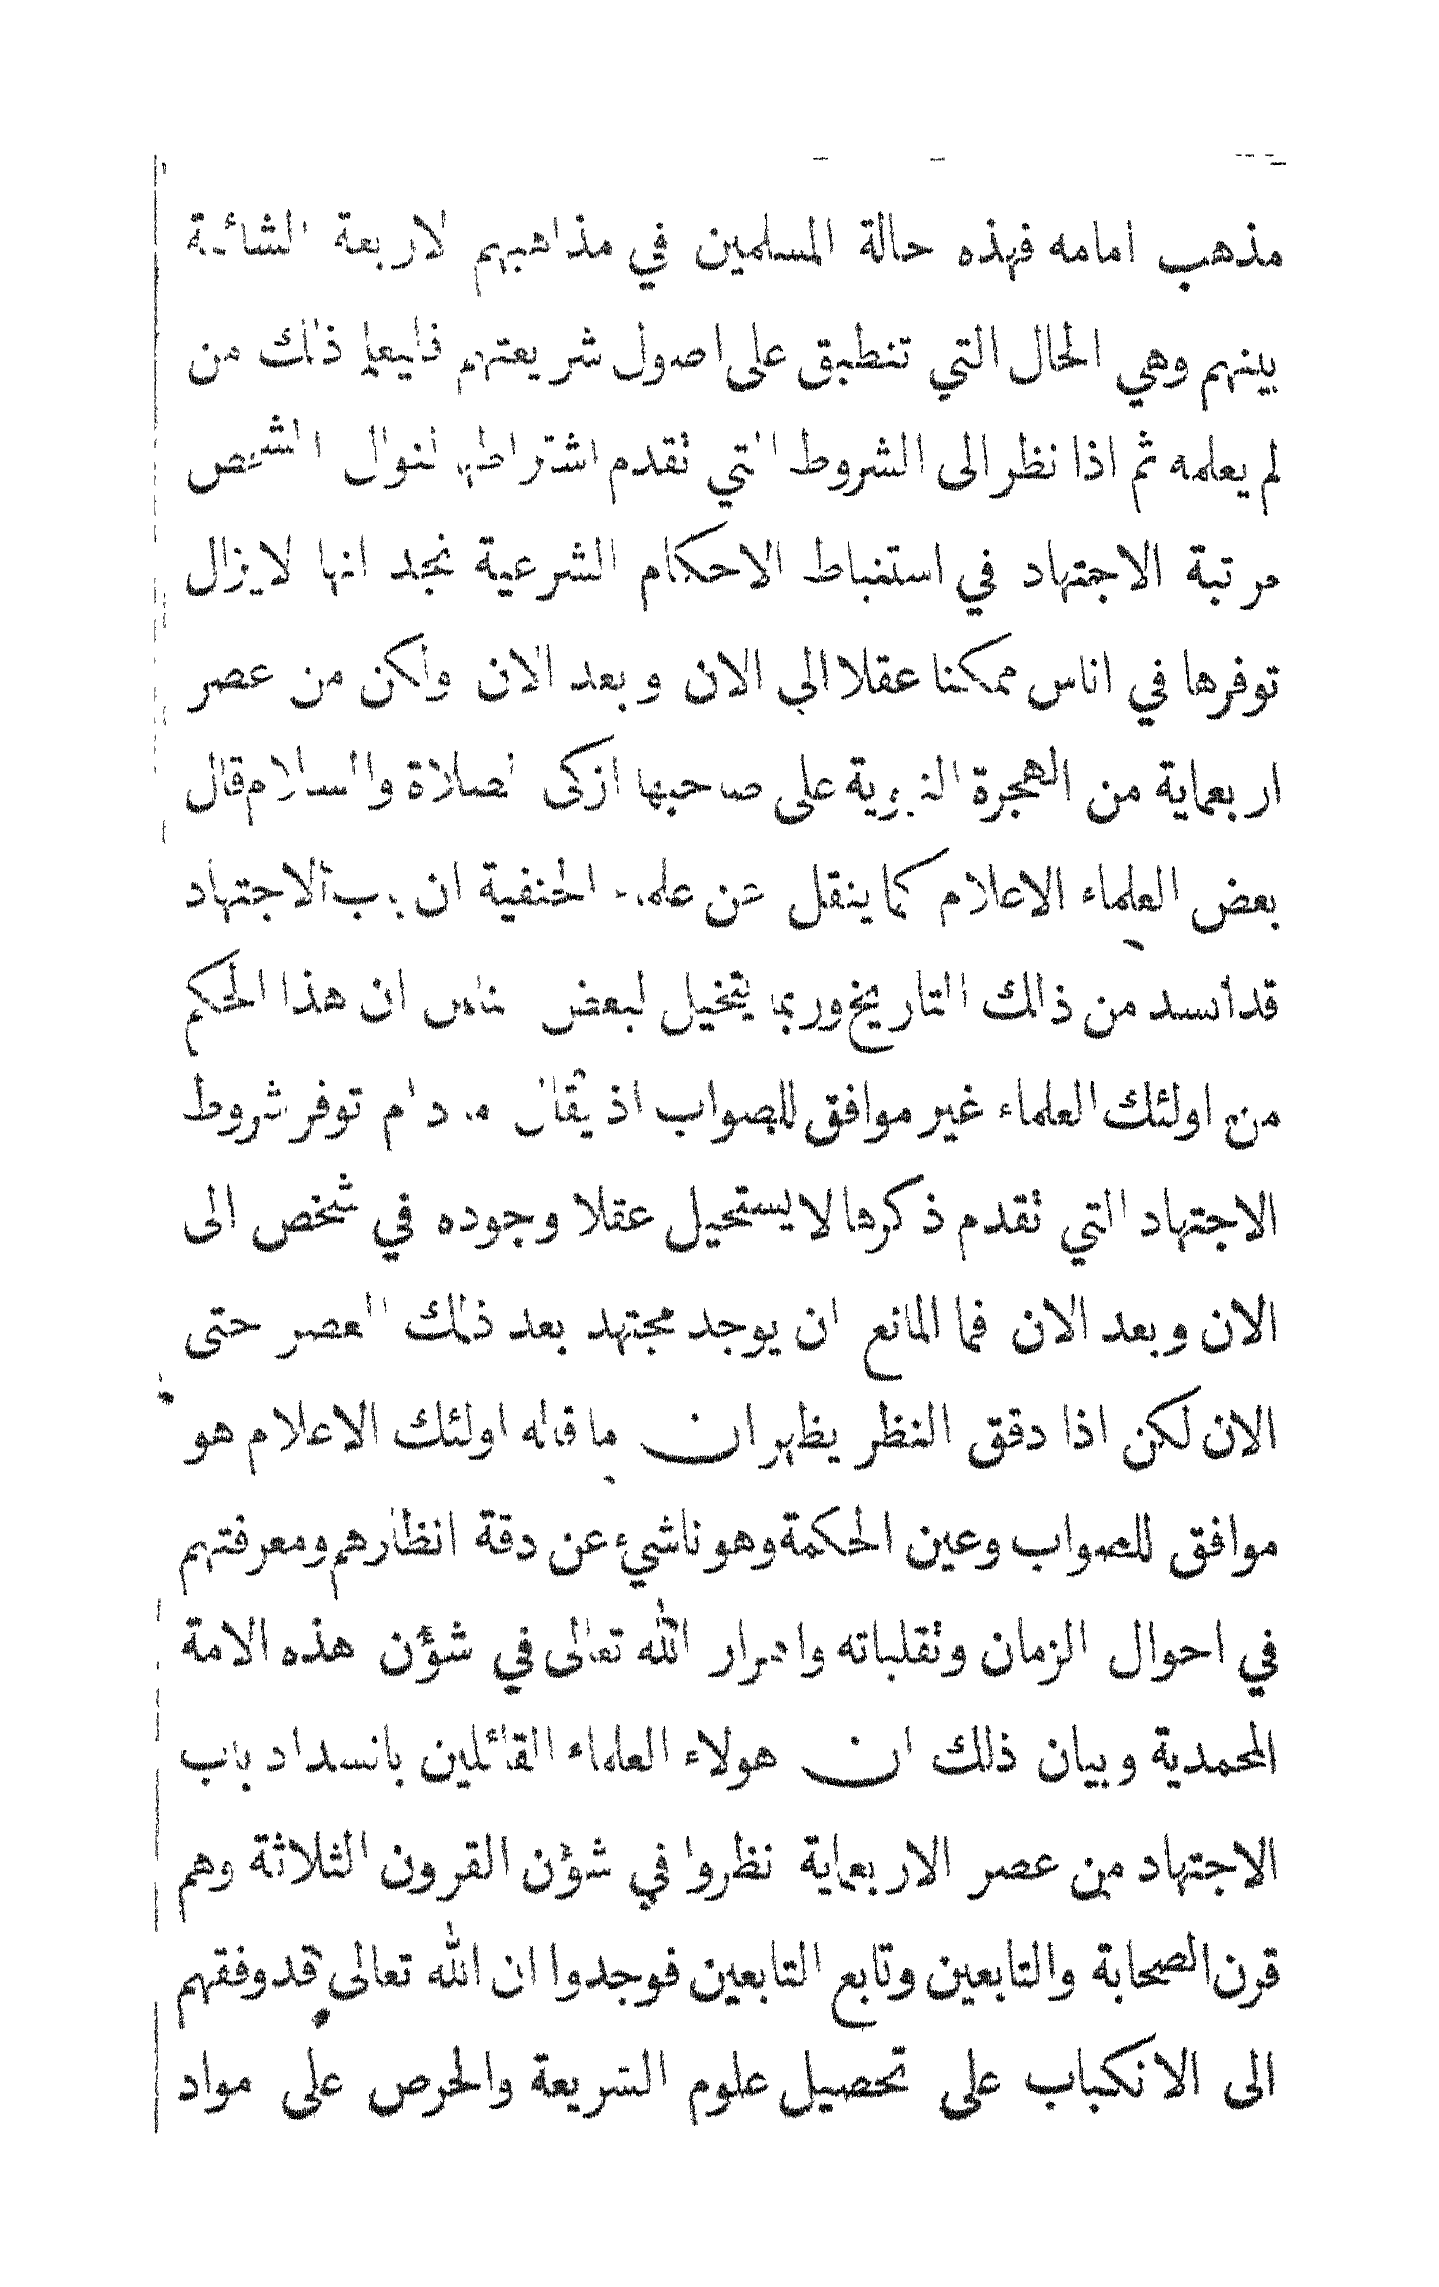 مذهب امامه فهذه حالة المسلمين في مذاهبهم الاربعة الشائعة
بينهم وهي الحال التي تنطبق على اصول شريعتهم فليعلم ذلك من
لم يعلمه ثم اذا نظر الى الشروط التي نقدم اشتراطها لنوال الشخص
مرتبة الاجتهاد في استنباط الاحكام الشرعية نجد انها لايزال
توفرها في اناس ممكنا عقلا الى الان وبعد الان ولكن من عصر
اربعماية من الهجرة النبوية على صاحبها ازكى الصلاة والسلام قال
بعض العلماء الاعلام كما ينقل عن علماء الحنفية ان باب الاجتهاد
قد أنسد من ذلك التاريخ وربما يتخيل لبعض الناس ان هذا الحكم
من اولئك العلماء غير موافق للصواب اذ يقال ما دام توفر شروط
الاجتهاد التي نقدم ذكرها لا يستحيل عقلا وجوده في شخص الى
الان وبعد الان فما المانع ان يوجد مجتهد بعد ذلك العصر حتى
الان لكن اذا دقق النظر يظهر ان ما قاله اولئك الاعلام هو
موافق للصواب وعين الحكمة وهو ناشيء عن دقة انظارهم ومعرفتهم
في احوال الزمان ونقلباته واسرار الله تعالى في شؤن هذه الامة
المحمدية وبيان ذلك ان هولاء العلماء القائلين بانسداد باب
الاجتهاد من عصر الاربعماية نظروا في شؤن القرون الثلاثة وهم
قرن الصحابة والتابعين وتابع التابعين فوجدوا ان الله تعالى قد وفقهم
الى الانكباب على تحصيل علوم الشريعة والحرص على مواد